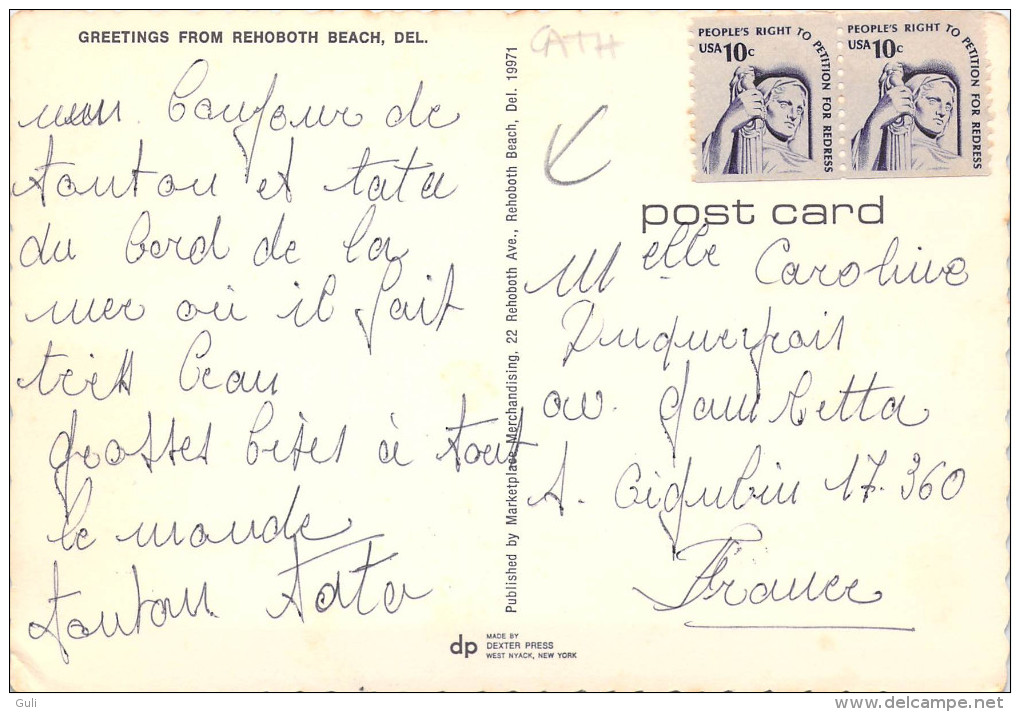 GREETINGS FROM REHOBOTH BEACH, DEL.
un bonjour de
tonton et tata
du bord de la
mer où il fait
très beau
grosses bises à tout
le monde
tonton tata
Published by Marketplace Merchandising, 22 Rehoboth Ave., Rehoboth Beach, Del. 19971
dp
MADE BY
DEXTER PRESS
WEST NYACK, NEW YORK
CATH
PEOPLE'S RIGHT TO PETITION FOR REDRESS
USA 10c
PEOPLE'S RIGHT TO PETITION FOR REDRESS
USA 10c
post card
Melle Caroline
av. gambetta
17.360
France
Guli
delcampe.net